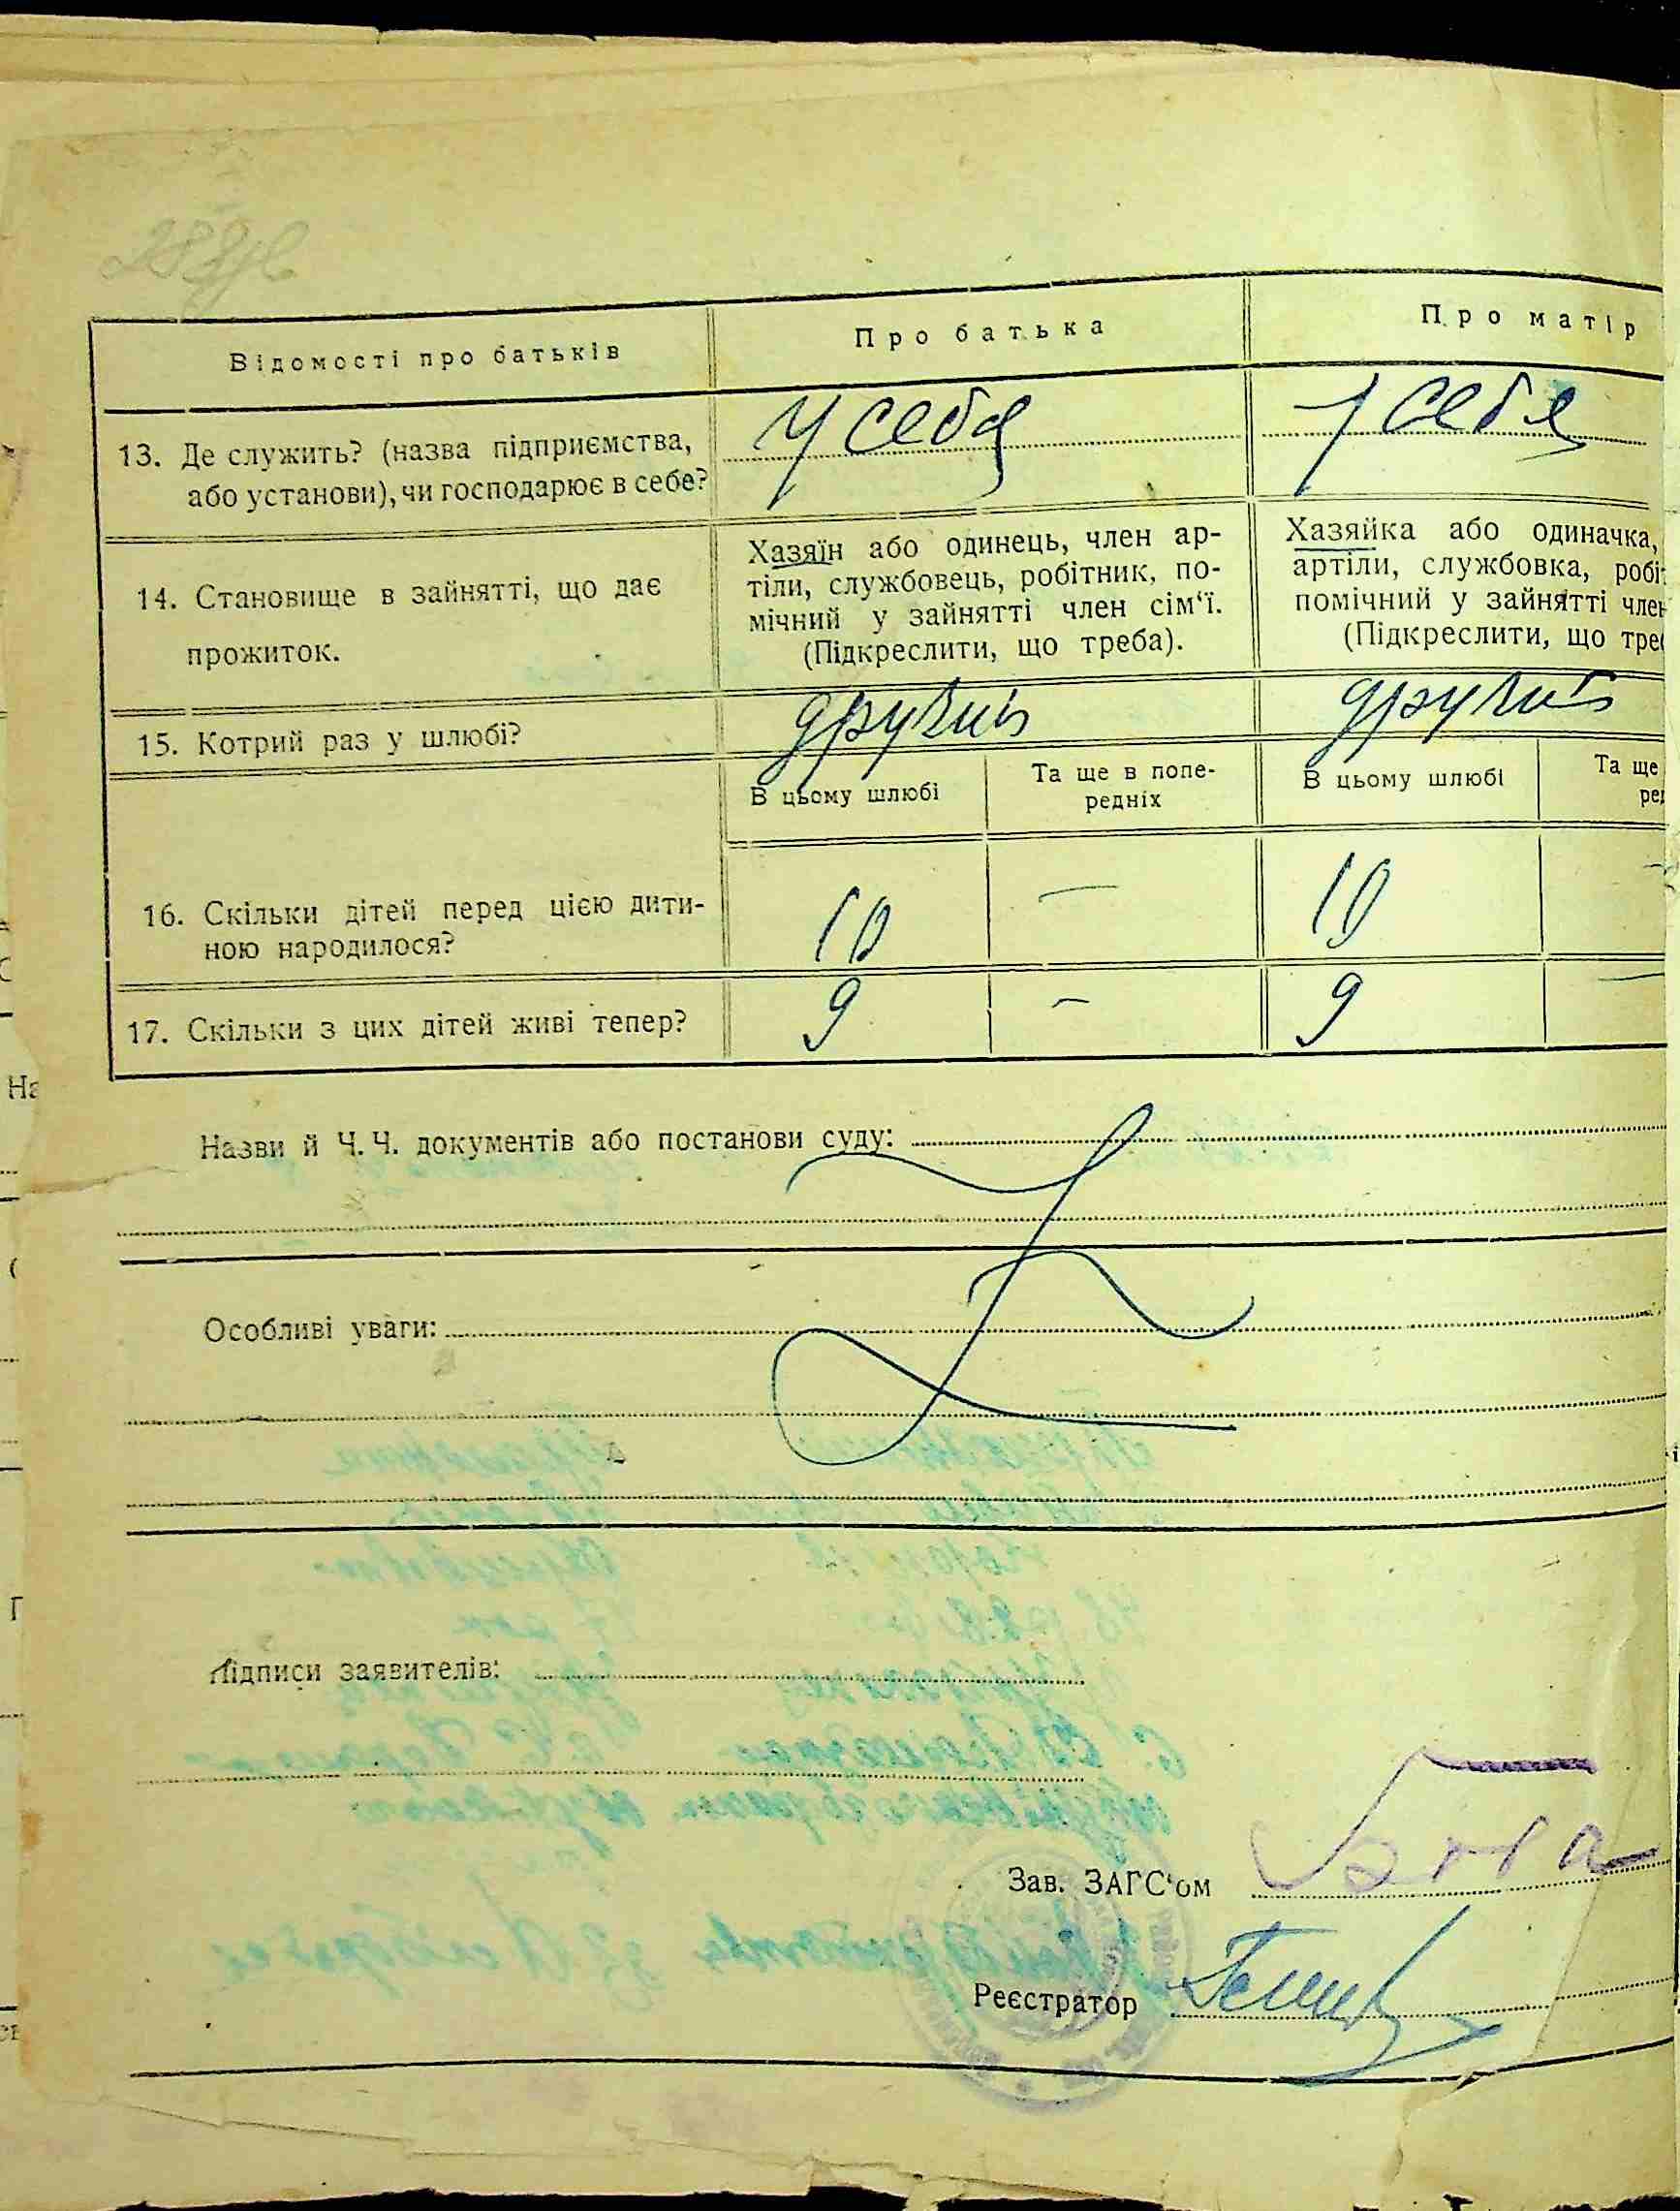 Відомості про батьків
Про батька
Про матір
13. Де служить? (назва підприємства,
або установи), чи господарює в себе?
У себя
У себя
14. Становище в зайнятті, що дає
прожиток.
Хазяїн або одинець, член ар-
тіли, службовець, робітник, по-
мічний у зайнятті член сім‘ї.
(Підкреслити, що треба).
Хазяйка або одиначка,
артіли, службовка, робіт
помічний у зайнятті член
(Підкреслити, що тре
15. Котрий раз у шлюбі?
другий
другий
В цьому шлюбі
Та ще в попе-
редніх
В цьому шлюбі
Та ще
ред
16. Скільки дітей перед цією дити-
ною народилося?
10
—
10
—
17. Скільки з цих дітей живі тепер?
9
—
9
—
Назви й Ч. Ч. документів або постанови суду:
Особливі уваги:
Підписи заявителів:
Зав. ЗАГС‘ом
Реєстратор